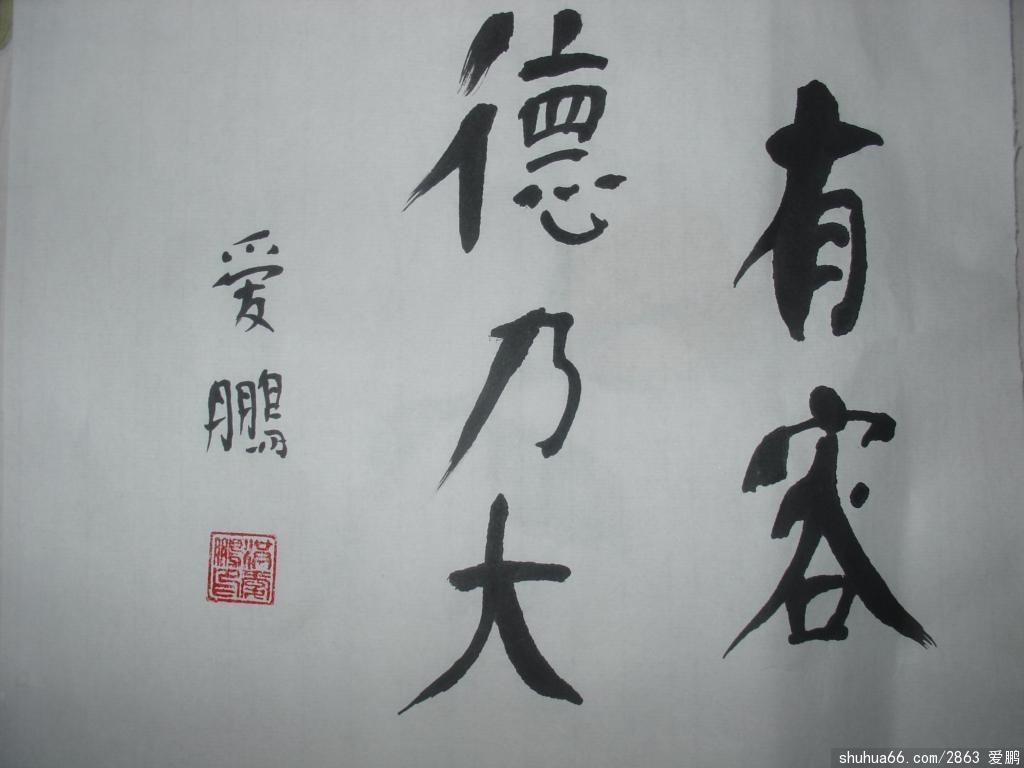 有容
德乃大
爱鹏
洪爱鹏印
shuhua66.com/2863 爱鹏